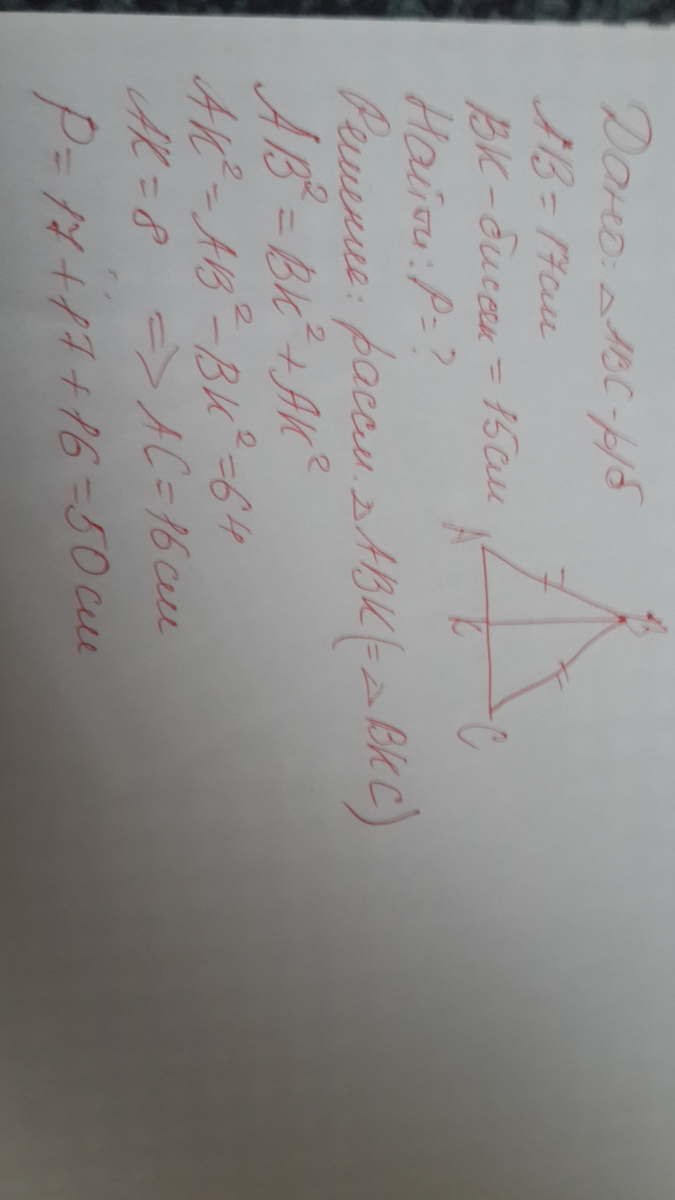 Дано: △ ABC - р/б
AB = 17 см
BK - биссек = 15 см
Найти: P = ?
Решение: рассм. △ ABK (= △ BKC)
AB² = BK² + AK²
AK² = AB² - BK² = 64
AK = 8 => AC = 16 см
P = 17 + 17 + 16 = 50 см
B
A
K
C